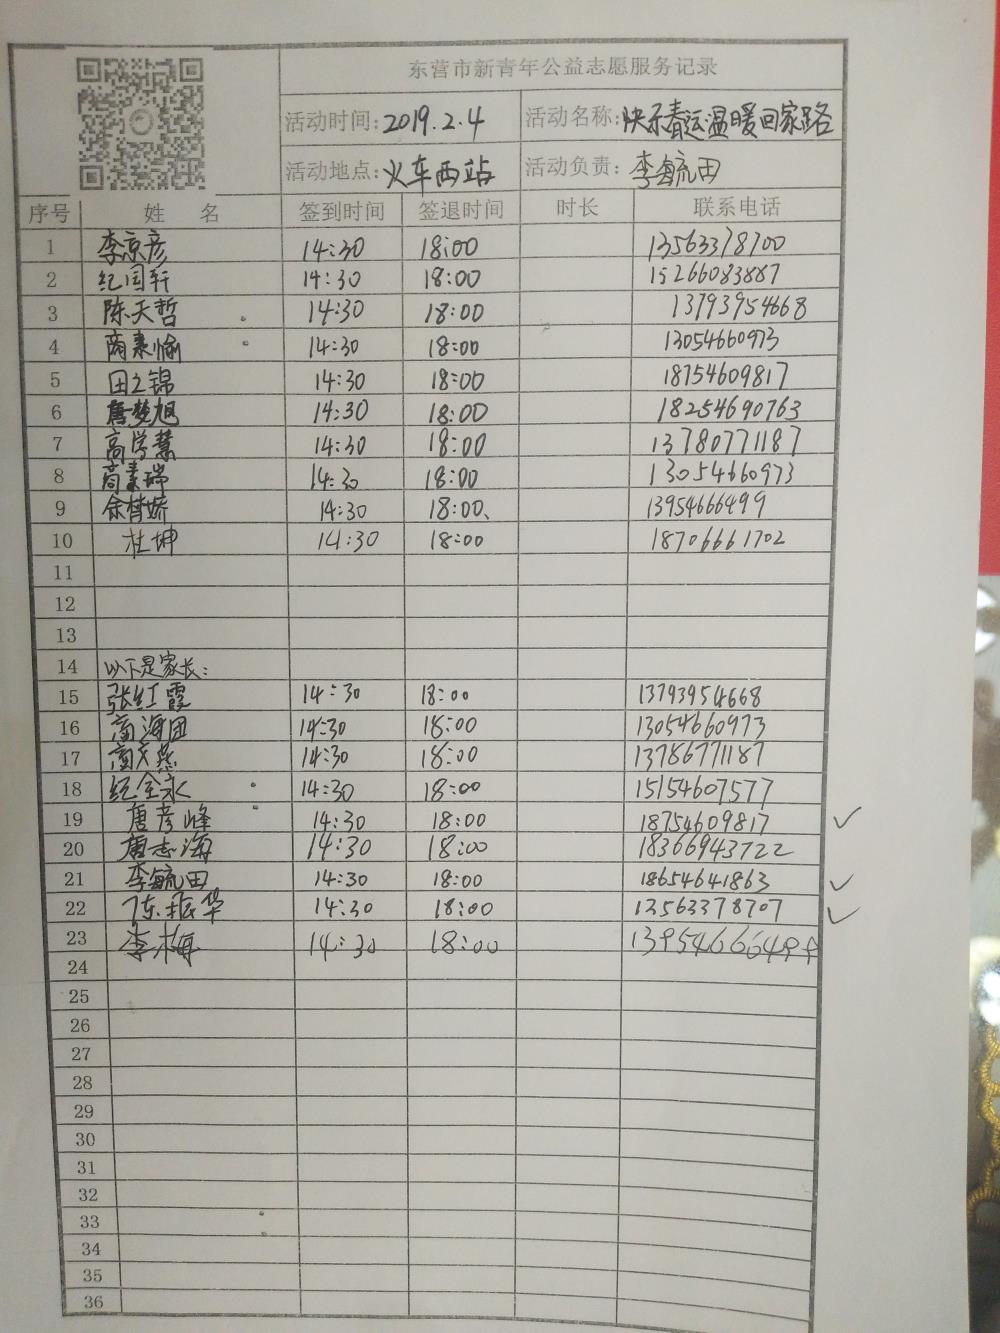 东营市新青年公益志愿服务记录
活动时间:2019.2.4 活动名称:快乐春运温暖回家路
活动地点:火车西站 活动负责:李毓田
序号 姓 名 签到时间 签退时间 时长 联系电话
1 李京彦 14:30 18:00 13563378700
2 纪国轩 14:30 18:00 15266083887
3 陈天哲 14:30 18:00 13793954668
4 商素愉 14:30 18:00 13054660973
5 田之锦 14:30 18:00 18754609817
6 唐梦旭 14:30 18:00 18254690763
7 高学慧 14:30 18:00 13780771187
8 商素瑞 14:30 18:00 13054660973
9 余梦娇 14:30 18:00、 13954666499
10 杜坤 14:30 18:00 18706661702
11
12
13
14 以下是家长:
15 张红霞 14:30 18:00 13793954668
16 商海团 14:30 18:00 13054660973
17 14:30 18:00 13786771187
18 纪全永 14:30 18:00 15154607577
19 唐彦峰 14:30 18:00 18754609817 ✓
20 唐志海 14:30 18:00 18366943722
21 李毓田 14:30 18:00 18654641863 ✓
22 陈振华 14:30 18:00 13563378707 ✓
23 李梅 14:30 18:00
24
25
26
27
28
29
30
31
32
33
34
35
36